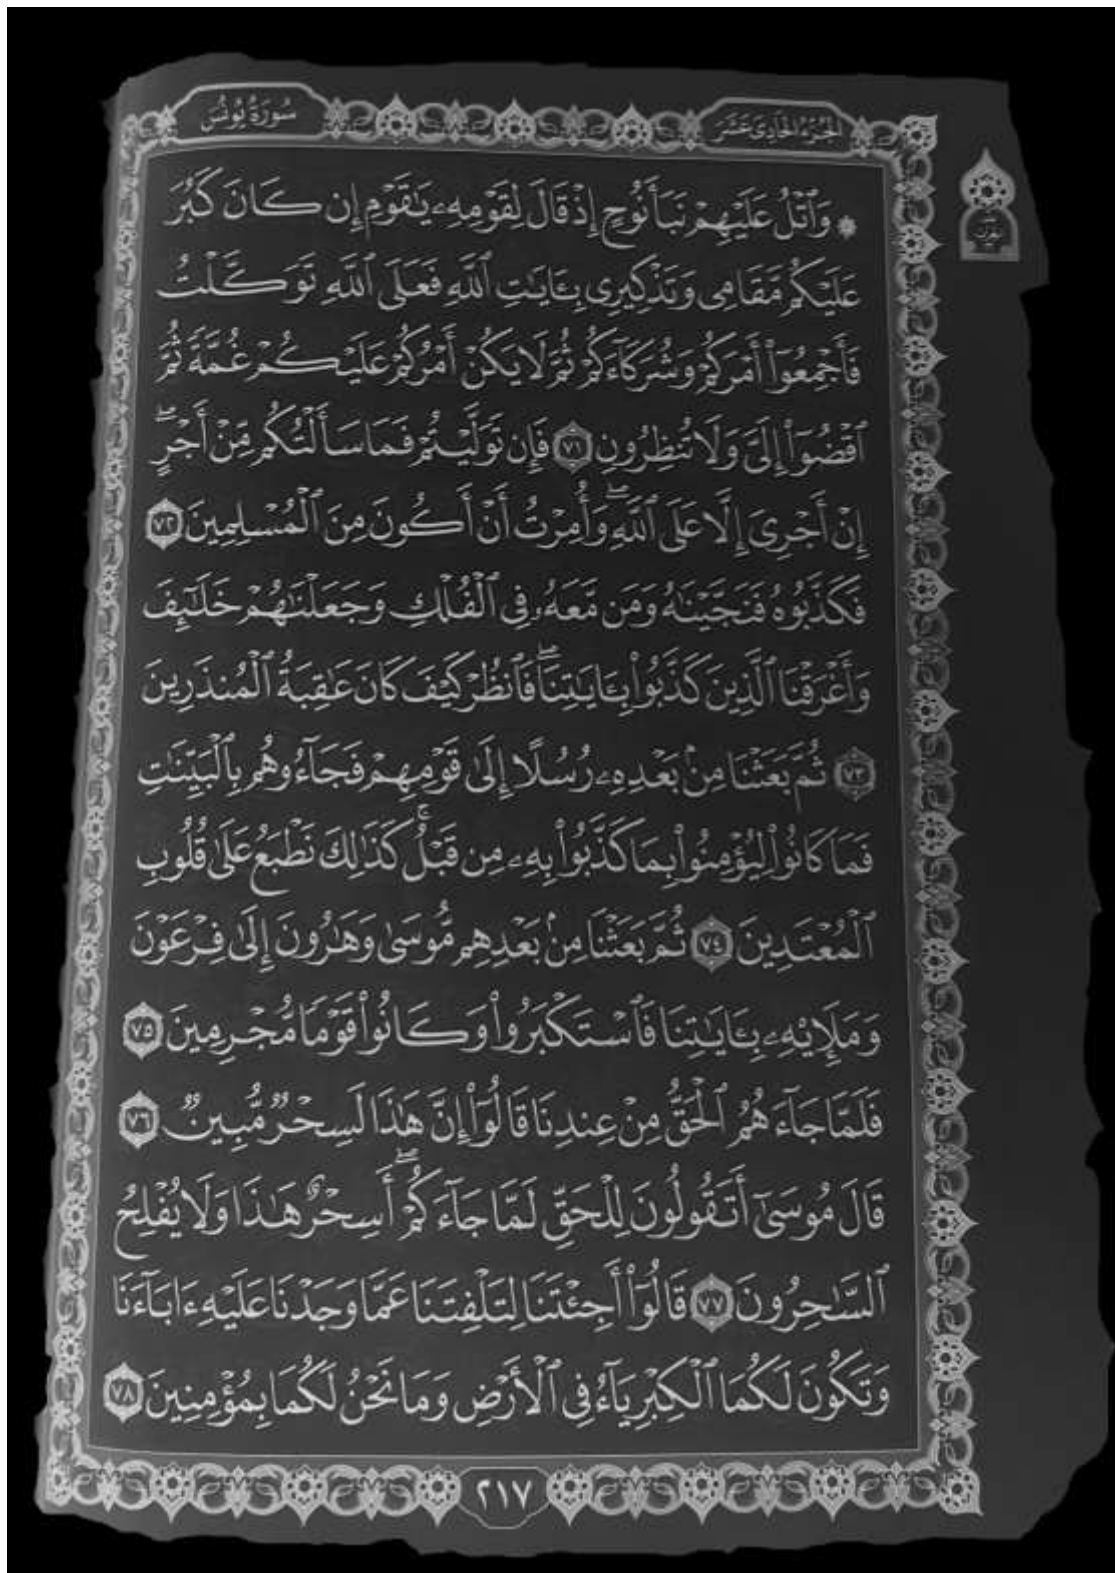 سُورَةُ يُونُسَ
الجُزْءُ الحَادِيَ عَشَرَ
۞ وَٱتۡلُ عَلَيۡهِمۡ نَبَأَ نُوحٍ إِذۡ قَالَ لِقَوۡمِهِۦ يَٰقَوۡمِ إِن كَانَ كَبُرَ
عَلَيۡكُم مَّقَامِي وَتَذۡكِيرِي بِـَٔايَٰتِ ٱللَّهِ فَعَلَى ٱللَّهِ تَوَكَّلۡتُ
فَأَجۡمِعُوٓاْ أَمۡرَكُمۡ وَشُرَكَآءَكُمۡ ثُمَّ لَا يَكُنۡ أَمۡرُكُمۡ عَلَيۡكُمۡ غُمَّةٗ ثُمَّ
ٱقۡضُوٓاْ إِلَيَّ وَلَا تُنظِرُونِ ٧١ فَإِن تَوَلَّيۡتُمۡ فَمَا سَأَلۡتُكُم مِّنۡ أَجۡرٍۖ
إِنۡ أَجۡرِيَ إِلَّا عَلَى ٱللَّهِۖ وَأُمِرۡتُ أَنۡ أَكُونَ مِنَ ٱلۡمُسۡلِمِينَ ٧٢
فَكَذَّبُوهُ فَنَجَّيۡنَٰهُ وَمَن مَّعَهُۥ فِي ٱلۡفُلۡكِ وَجَعَلۡنَٰهُمۡ خَلَٰٓئِفَ
وَأَغۡرَقۡنَا ٱلَّذِينَ كَذَّبُواْ بِـَٔايَٰتِنَاۖ فَٱنظُرۡ كَيۡفَ كَانَ عَٰقِبَةُ ٱلۡمُنذَرِينَ
٧٣ ثُمَّ بَعَثۡنَا مِنۢ بَعۡدِهِۦ رُسُلًا إِلَىٰ قَوۡمِهِمۡ فَجَآءُوهُم بِٱلۡبَيِّنَٰتِ
فَمَا كَانُواْ لِيُؤۡمِنُواْ بِمَا كَذَّبُواْ بِهِۦ مِن قَبۡلُۚ كَذَٰلِكَ نَطۡبَعُ عَلَىٰ قُلُوبِ
ٱلۡمُعۡتَدِينَ ٧٤ ثُمَّ بَعَثۡنَا مِنۢ بَعۡدِهِم مُّوسَىٰ وَهَٰرُونَ إِلَىٰ فِرۡعَوۡنَ
وَمَلَإِيْهِۦ بِـَٔايَٰتِنَا فَٱسۡتَكۡبَرُواْ وَكَانُواْ قَوۡمٗا مُّجۡرِمِينَ ٧٥
فَلَمَّا جَآءَهُمُ ٱلۡحَقُّ مِنۡ عِندِنَا قَالُوٓاْ إِنَّ هَٰذَا لَسِحۡرٞ مُّبِينٞ ٧٦
قَالَ مُوسَىٰٓ أَتَقُولُونَ لِلۡحَقِّ لَمَّا جَآءَكُمۡۖ أَسِحۡرٌ هَٰذَا وَلَا يُفۡلِحُ
ٱلسَّٰحِرُونَ ٧٧ قَالُوٓاْ أَجِئۡتَنَا لِتَلۡفِتَنَا عَمَّا وَجَدۡنَا عَلَيۡهِ ءَابَآءَنَا
وَتَكُونَ لَكُمَا ٱلۡكِبۡرِيَآءُ فِي ٱلۡأَرۡضِ وَمَا نَحۡنُ لَكُمَا بِمُؤۡمِنِينَ ٧٨
٢١٧